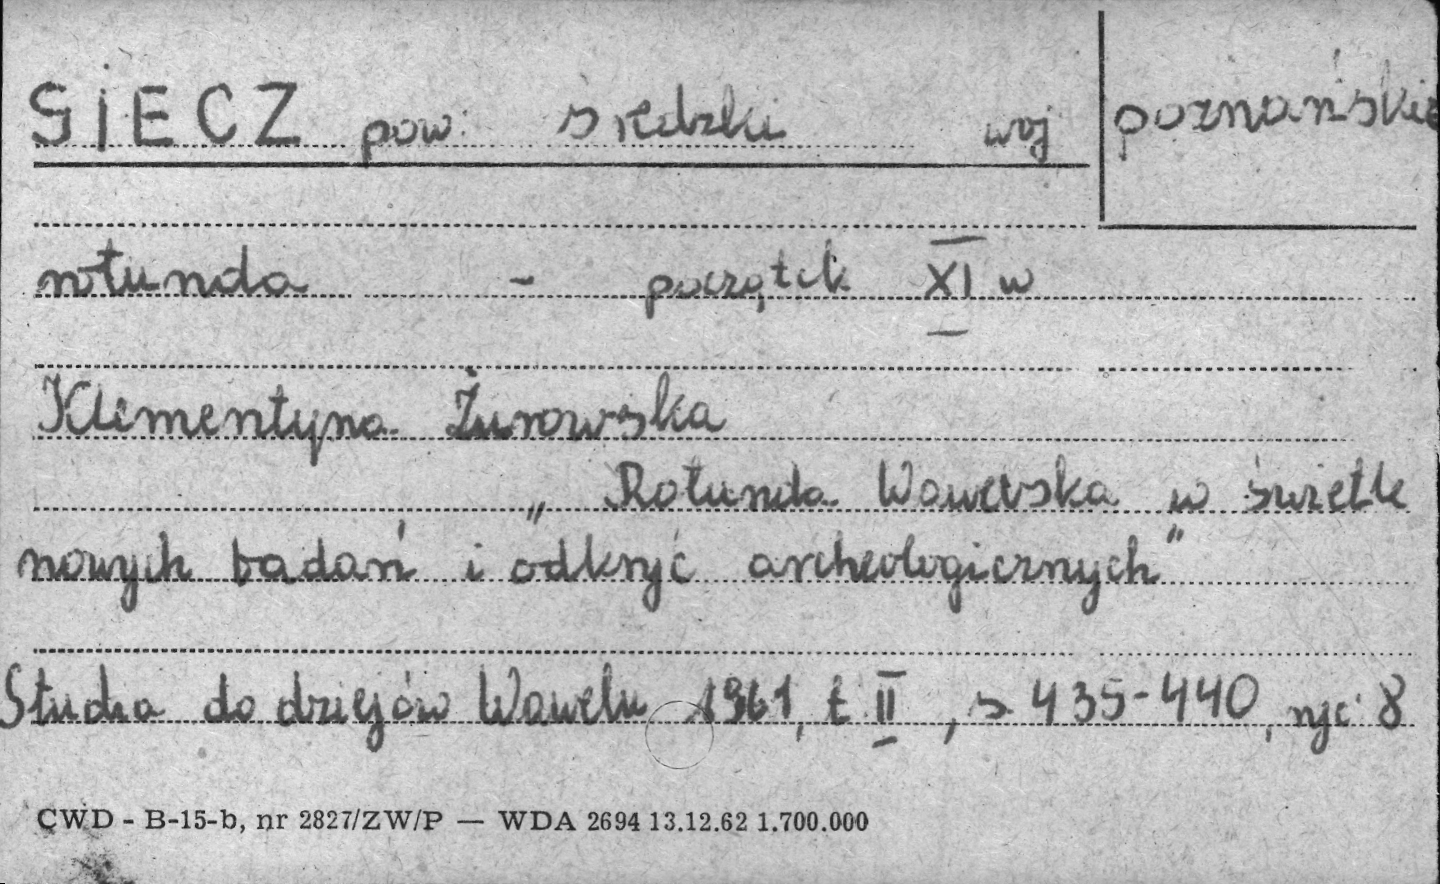 GIECZ pow. średzki woj poznańskie
rotunda - początek XI w
Klementyna Żurowska
„ Rotunda Wawelska w świetle
nowych badań i odkryć archeologicznych"
Studia do dziejów Wawelu 1961, t II, s 435-440, ryc 8
CWD - B-15-b, nr 2827/ZW/P — WDA 2694 13.12.62 1.700.000